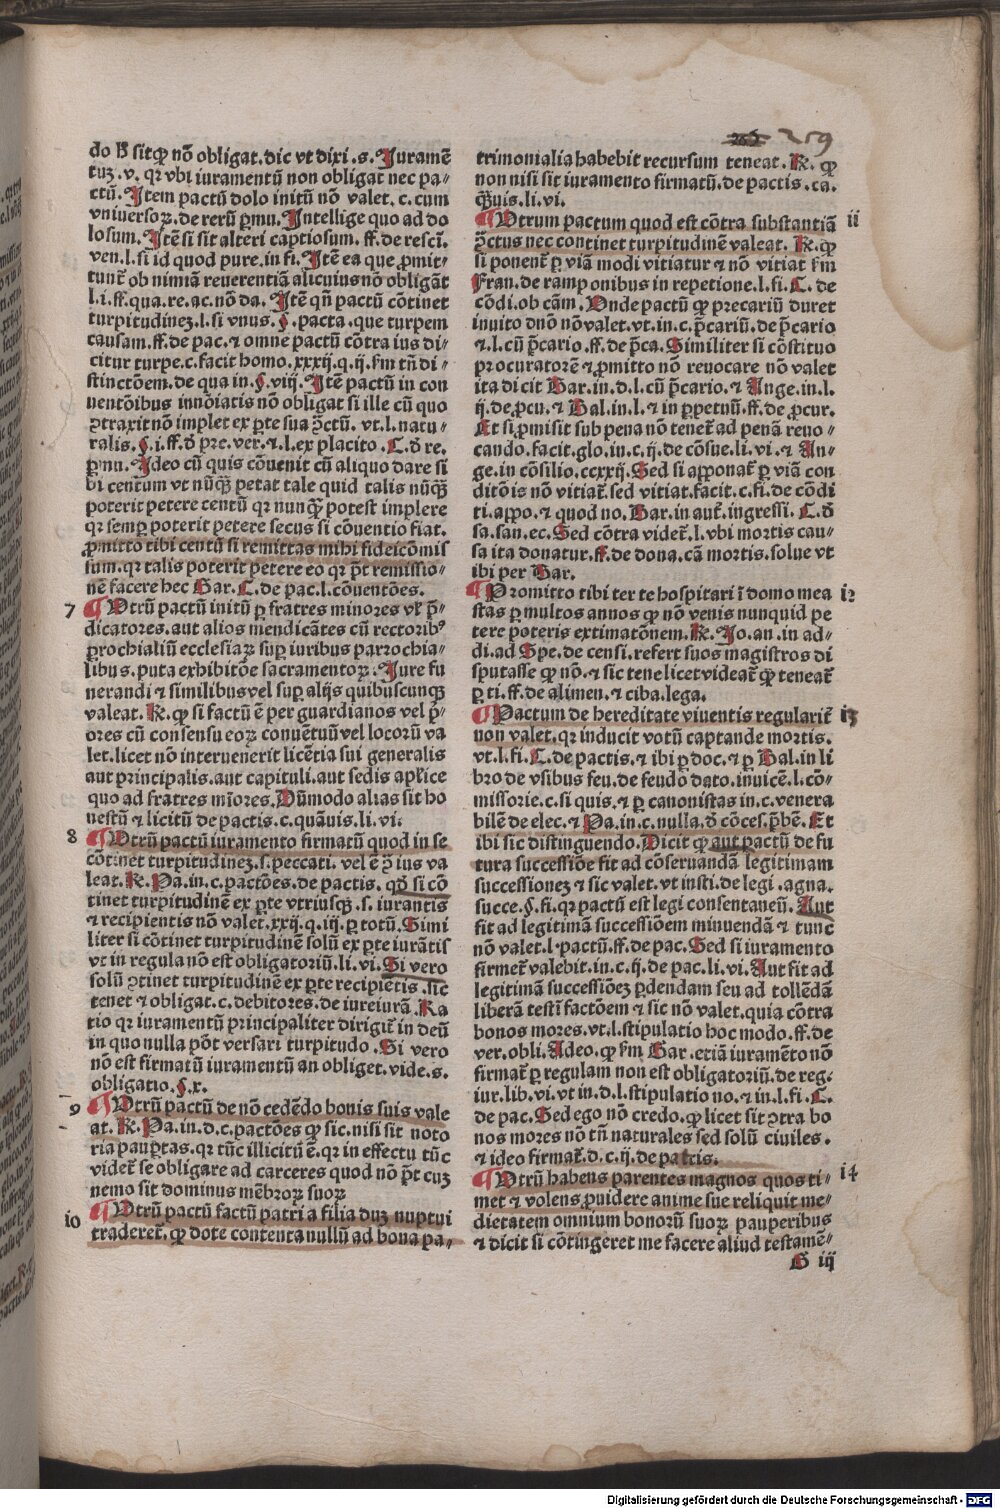 259
do ħ sitꝙ nō obligat. dic vt dixi .s. Juramē
tuꝫ .v. qr vbi iuramentū non obligat nec pa⸗
ctū. Item pactū dolo initū nō valet .c. cum
vniuersoꝝ. de rerū ꝑmu. Intellige quo ad do
losum. Itē si sit alteri captiosum. ff. de resci.
ven. l. si id quod pure. in fi. Itē ea que ꝓmit⸗
tunt̄ ob nimiā reuerentiā alicuius nō obligāt
l.i. ff. qua. re. ac. nō da. Itē qn̄ pactū cōtinet
turpitudineꝫ. l. si vnus. §. pacta. que turpem
causam. ff. de pac. ⁊ omne pactū cōtra ius di⸗
citur turpe. c. facit homo. xxxij. q. ij. ẜm tn̄ di⸗
stinctōem. de qua in. §. viij. Itē pactū in con
uentōibus innōiatis nō obligat si ille cū quo
ꝯtraxit nō implet ex ꝑte sua p̄ctū. vt. l. natu⸗
ralis. §. i. ff. d̄ pre. ver. ⁊. l. ex placito. C. d̄ re.
ꝑmu. Ideo cū quis cōuenit cū aliquo dare si
bi centum vt nūqꝫ petat tale quid talis nūqꝫ
poterit petere centū qr nunqꝫ potest implere
qr semꝑ poterit petere secus si cōuentio fiat.
ꝓmitto tibi centū si remittas mihi fideicōmis
sum. qr talis poterit petere eo qr p̄t remissio⸗
nē facere hec Bar. C. de pac. l. cōuentōes.
7 ¶ Vtrū pactū initū ꝑ fratres minores vl̓ p̄⸗
dicatores. aut alios mendicātes cū rectoribꝰ
ꝑrochialiū ecclesiaꝝ suꝑ iuribus parrochia⸗
libus. puta exhibitōe sacramentoꝝ. Jure fu
nerandi ⁊ similibus vel suꝑ alijs quibuscunqꝫ
valeat. R̄. ꝙ si factū ē per guardianos vel p̄⸗
ores cū consensu eoꝝ conuētuū vel locorū va
let. licet nō interuenerit licētia sui generalis
aut principalis. aut capituli. aut sedis aplīce
quo ad fratres mīores. Dūmodo alias sit ho
nestū ⁊ licitū de pactis. c. quāuis. li. vi.
8 ¶ Vtrū pactū iuramento firmatū quod in se
cōtinet turpitudineꝫ. s. peccati. vel ē p̄ ius va
leat. R̄. Pa. in. c. pactōes. de pactis. qd̓ si cō
tinet turpitudinē ex ꝑte vtriusqꝫ .s. iurantis
⁊ recipientis nō valet. xxij. q. iij. ꝑ totū. Simi
liter si cōtinet turpitudinē solū ex ꝑte iurātis
vt in regula nō est obligatoriū. li. vi. Si vero
solū ꝯtinet turpitudinē ex ꝑte recipiētis. sic
tenet ⁊ obligat. c. debitores. de iureiurā. Ra
tio qr iuramentū principaliter dirigit̄ in deū
in quo nulla pōt versari turpitudo. Si vero
nō est firmatū iuramentū an obliget. vide .s.
obligatio. §. x.
9 ¶ Vtrū pactū de nō cedēdo bonis suis vale
at. R̄. Pa. in. d. c. pactōes ꝙ sic. nisi sit noto
ria pauꝑtas. qr tūc illicitū ē. qr in effectu tūc
videt̄ se obligare ad carceres quod nō p̄t cuꝫ
nemo sit dominus mēbroꝝ suoꝝ
10 ¶ Vtrū pactū factū patri a filia duꝫ nuptui
traderet̄. ꝙ dote contenta nullū ad bona pa⸗
trimonialia habebit recursum teneat. R̄. ꝙ
non nisi sit iuramento firmatū. de pactis. ca.
qͣuis. li. vi.
¶ Vtrum pactum quod est cōtra substantiā 11
p̄ctus nec continet turpitudinē valeat. R̄. ꝙ
si ponent̄ ꝑ viā modi vitiatur ⁊ nō vitiat ẜm
Fran. de ramponibus in repetione. l. fi. C. de
cōdi. ob cām. Vnde pactū ꝙ precariū duret
inuito dn̄o nō valet. vt. in. c. p̄cariū. de p̄cario
⁊. l. cū p̄cario. ff. de p̄ca. Similiter si cōstituo
procuratorē ⁊ ꝓmitto nō reuocare nō valet
ita dicit Bar. in. d. l. cū p̄cario. ⁊ Ange. in. l.
ij. de ꝓcu. ⁊ Bal. in. l. ⁊ in ꝑpetuū. ff. de ꝓcur.
Et si ꝓmisit sub pena nō tenet̄ ad penā reuo⸗
cando. facit. glo. in. c. ij. de cōsue. li. vi. ⁊ An⸗
ge. in cōsilio. ccxxij. Sed si apponat̄ ꝑ viā con
ditōis nō vitiat̄. sed vitiat. facit. c. fi. de cōdi
ti. appo. ⁊ quod no. Bar. in aut̄. ingressi. C. d̄
sa. san. ec. Sed cōtra videt̄. l. vbi mortis cau⸗
sa ita donatur. ff. de dona. cā mortis. solue vt
ibi per Bar.
¶ Promitto tibi ter te hospitari ī domo mea 12
stas ꝑ multos annos ꝙ nō venis nunquid pe
tere poteris extimatōnem. R̄. Jo. an. in ad⸗
di. ad Spe. de censi. refert suos magistros di
sputasse ꝙ nō. ⁊ sic tene licet videat̄ ꝙ teneat̄
ꝑ ti. ff. de alimen. ⁊ ciba. lega.
¶ Pactum de hereditate viuentis regularit̄ 13
non valet. qr inducit votū captande mortis.
vt. l. fi. C. de pactis. ⁊ ibi ꝑ doc. ⁊ ꝑ Bal. in li
bro de vsibus feu. de feudo dato. inuicē. l. cō⸗
missorie. c. si quis. ⁊ ꝑ canonistas in. c. venera
bilē de elec. ⁊ Pa. in. c. nulla. d̄ cōces. p̄bē. Et
ibi sic distinguendo. Dicit ꝙ aut pactū de fu
tura successiōe fit ad cōseruandā legitimam
successioneꝫ ⁊ sic valet. vt insti. de legi. agna.
succe. §. fi. qr pactū est legi consentaneū. Aut
fit ad legitimā successiōem minuendā ⁊ tunc
nō valet. l. pactū. ff. de pac. Sed si iuramento
firmet̄ valebit. in. c. ij. de pac. li. vi. Aut fit ad
legitimā successiōeꝫ ꝑdendam seu ad tollēdā
liberā testī factōem ⁊ sic nō valet. quia cōtra
bonos mores. vt. l. stipulatio hoc modo. ff. de
ver. obli. Adeo. ꝙ ẜm Bar. etiā iuramēto nō
firmat̄ ꝑ regulam non est obligatoriū. de reg.
iur. lib. vi. vt in. d. l. stipulatio no. ⁊ in. l. fi. C.
de pac. Sed ego nō credo. ꝙ licet sit ꝯtra bo
nos mores nō tn̄ naturales sed solū ciuiles.
⁊ ideo firmat̄. d. c. ij. de pactis.
¶ Vtrū habens parentes magnos quos ti⸗ 14
met ⁊ volens ꝓuidere anime sue reliquit me⸗
dietatem omnium bonorū suoꝝ pauperibus
⁊ dicit si cōtingeret me facere aliud testamē⸗
G iij
Digitalisierung gefördert durch die Deutsche Forschungsgemeinschaft - DFG